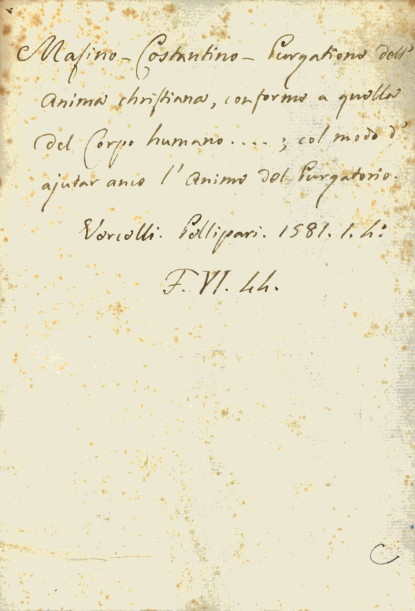 Masino - Costantino - Purgatione dell'
anima christiana, conforme a quella
del Corpo humano....; col modo d'
ajutar anco l'Anime del Purgatorio.
Vercelli. Pellipari. 1581. 1. 4°
F. VI. 44.
C